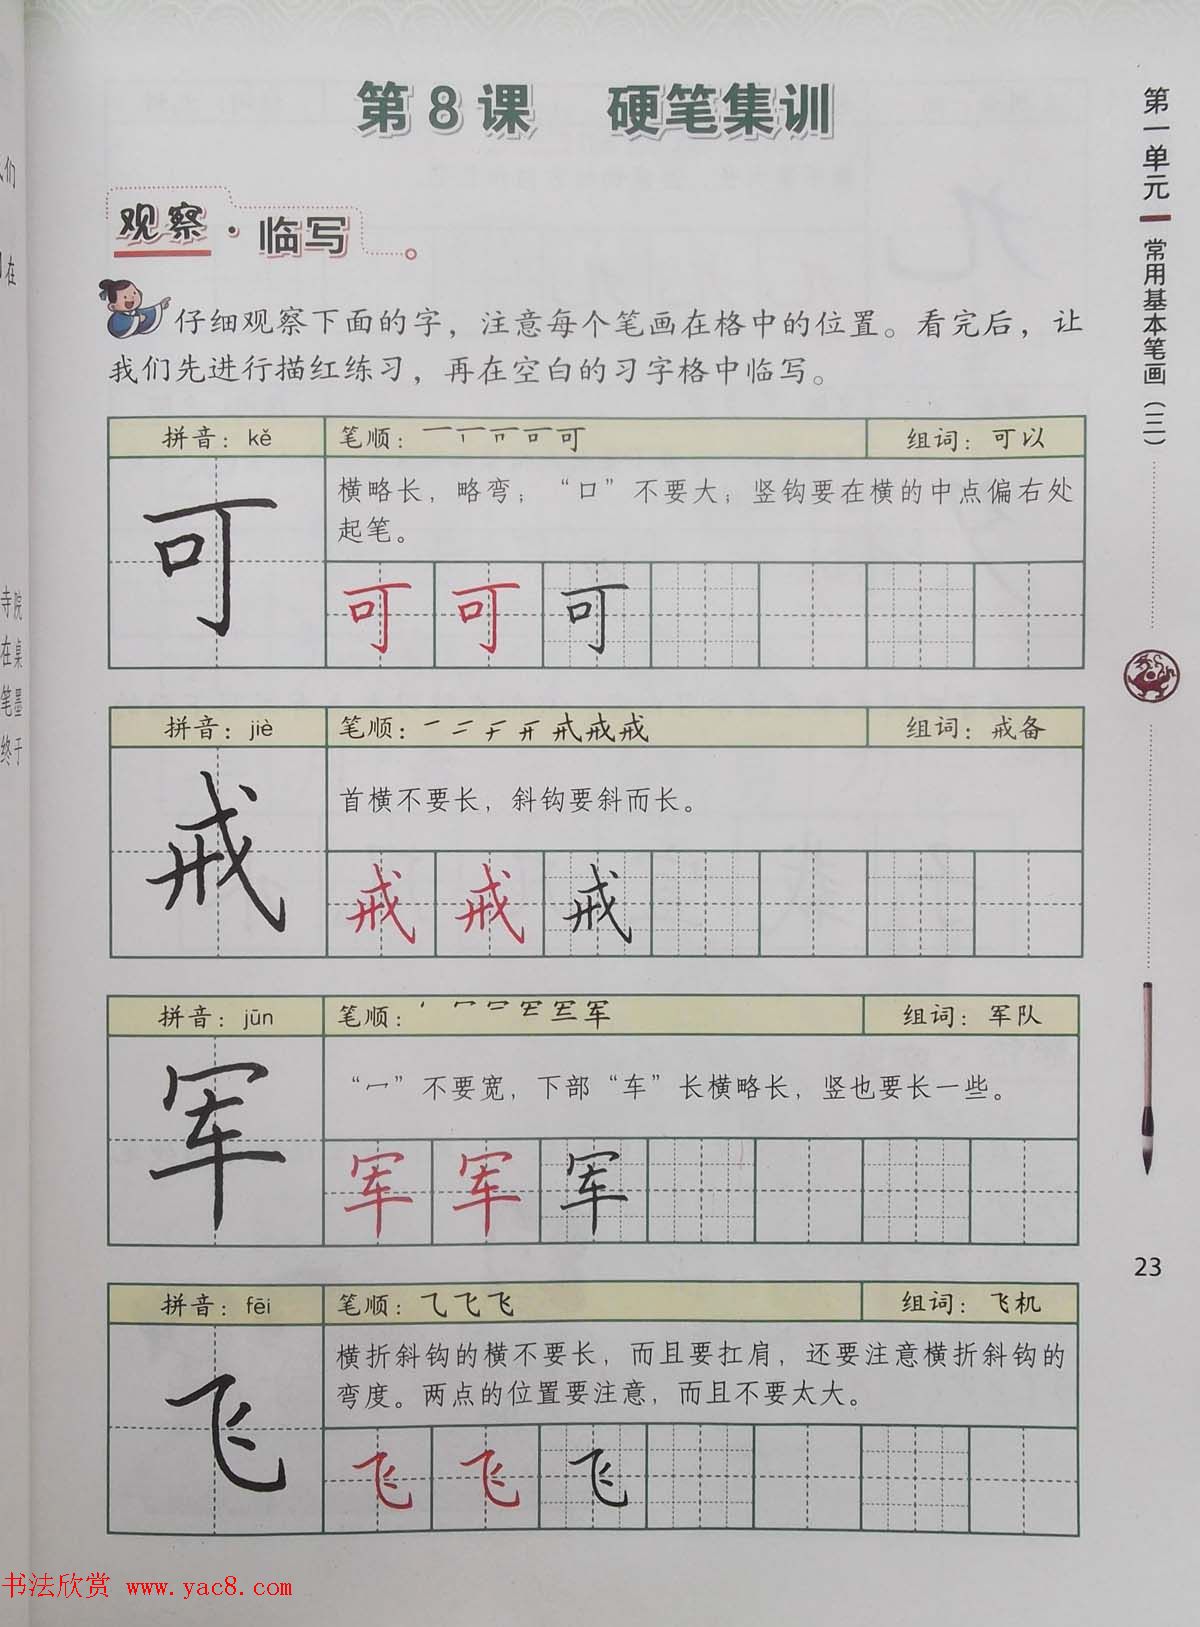 第8课 硬笔集训
观察·临写
仔细观察下面的字，注意每个笔画在格中的位置。看完后，让
我们先进行描红练习，再在空白的习字格中临写。
拼音：kě 笔顺： 可 组词：可以
可
横略长，略弯；“口”不要大；竖钩要在横的中点偏右处
起笔。
可 可 可
拼音：jiè 笔顺： 戒 组词：戒备
戒
首横不要长，斜钩要斜而长。
戒 戒 戒
拼音：jūn 笔顺： 军 组词：军队
军
“冖”不要宽，下部“车”长横略长，竖也要长一些。
军 军 军
拼音：fēi 笔顺：⺄ 飞 组词：飞机
飞
横折斜钩的横不要长，而且要扛肩，还要注意横折斜钩的
弯度。两点的位置要注意，而且不要太大。
飞 飞 飞
第一单元 常用基本笔画（二）
23
们
在
寺院
在桌
笔墨
终于
书法欣赏 www.yac8.com